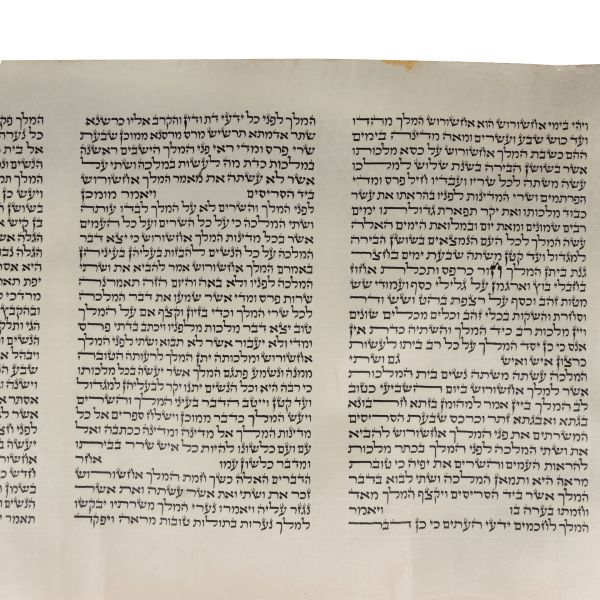 ויהי בימי אחשורוש הוא אחשורוש המלך מהדו
ועד כוש שבע ועשרים ומאה מדינה בימים
ההם כשבת המלך אחשורוש על כסא מלכותו
אשר בשושן הבירה בשנת שלוש למלכו
עשה משתה לכל שריו ועבדיו חיל פרס ומדי
הפרתמים ושרי המדינות לפניו בהראתו את עשר
כבוד מלכותו ואת יקר תפארת גדולתו ימים
רבים שמונים ומאת יום ובמלואת הימים האלה
עשה המלך לכל העם הנמצאים בשושן הבירה
למגדול ועד קטן משתה שבעת ימים בחצר
גנת ביתן המלך חור כרפס ותכלת אחוז
בחבלי בוץ וארגמן על גלילי כסף ועמודי שש
מטות זהב וכסף על רצפת בהט ושש ודר
וסחרת והשקות בכלי זהב וכלים מכלים שונים
ויין מלכות רב כיד המלך והשתיה כדת אין
אנס כי כן יסד המלך על כל רב ביתו לעשות
כרצון איש ואיש גם ושתי
המלכה עשתה משתה נשים בית המלכות
אשר למלך אחשורוש ביום השביעי כטוב
לב המלך ביין אמר למהומן בזתא חרבונא
בגתא ואבגתא זתר וכרכס שבעת הסריסים
המשרתים את פני המלך אחשורוש להביא
את ושתי המלכה לפני המלך בכתר מלכות
להראות העמים והשרים את יפיה כי טובת
מראה היא ותמאן המלכה ושתי לבוא בדבר
המלך אשר ביד הסריסים ויקצף המלך מאד
וחמתו בערה בו ויאמר
המלך לחכמים ידעי העתים כי כן דבר
המלך לפני כל ידעי דת ודין והקרב אליו כרשנא
שתר אדמתא תרשיש מרס מרסנא ממוכן שבעת
שרי פרס ומדי ראי פני המלך הישבים ראשנה
במלכות כדת מה לעשות במלכה ושתי על
אשר לא עשתה את מאמר המלך אחשורוש
ביד הסריסים ויאמר מומכן
לפני המלך והשרים לא על המלך לבדו עותה
ושתי המלכה כי על כל השרים ועל כל העמים
אשר בכל מדינות המלך אחשורוש כי יצא דבר
המלכה על כל הנשים להבזות בעליהן בעיניהן
באמרם המלך אחשורוש אמר להביא את ושתי
המלכה לפניו ולא באה והיום הזה תאמרנה
שרות פרס ומדי אשר שמעו את דבר המלכה
לכל שרי המלך וכדי בזיון וקצף אם על המלך
טוב יצא דבר מלכות מלפניו ויכתב בדתי פרס
ומדי ולא יעבור אשר לא תבוא ושתי לפני המלך
אחשורוש ומלכותה יתן המלך לרעותה הטובה
ממנה ונשמע פתגם המלך אשר יעשה בכל מלכותו
כי רבה היא וכל הנשים יתנו יקר לבעליהן למגדול
ועד קטן וייטב הדבר בעיני המלך והשרים
ויעש המלך כדבר ממוכן וישלח ספרים אל כל
מדינות המלך אל מדינה ומדינה ככתבה ואל
עם ועם כלשונו להיות כל איש שרר בביתו
ומדבר כלשון עמו אחר
הדברים האלה כשך חמת המלך אחשורוש
זכר את ושתי ואת אשר עשתה ואת אשר
נגזר עליה ויאמרו נערי המלך משרתיו יבקשו
למלך נערות בתולות טובות מראה ויפקד
המלך פק
כל נערה
אל בית
הנשים
המלך
ויעש כן
בשושן
בן קיש
הגלה
הגלה
היא אס
יפת תא
מרדכי
ובהקבץ
הגי ותלק
הנשים
ויבהל א
שבע
וישנה
אסתר א
אשר ל
לפני חצ
יעשה ב
אחשורו
חדש כ
בשמן
הנשים
תאמר